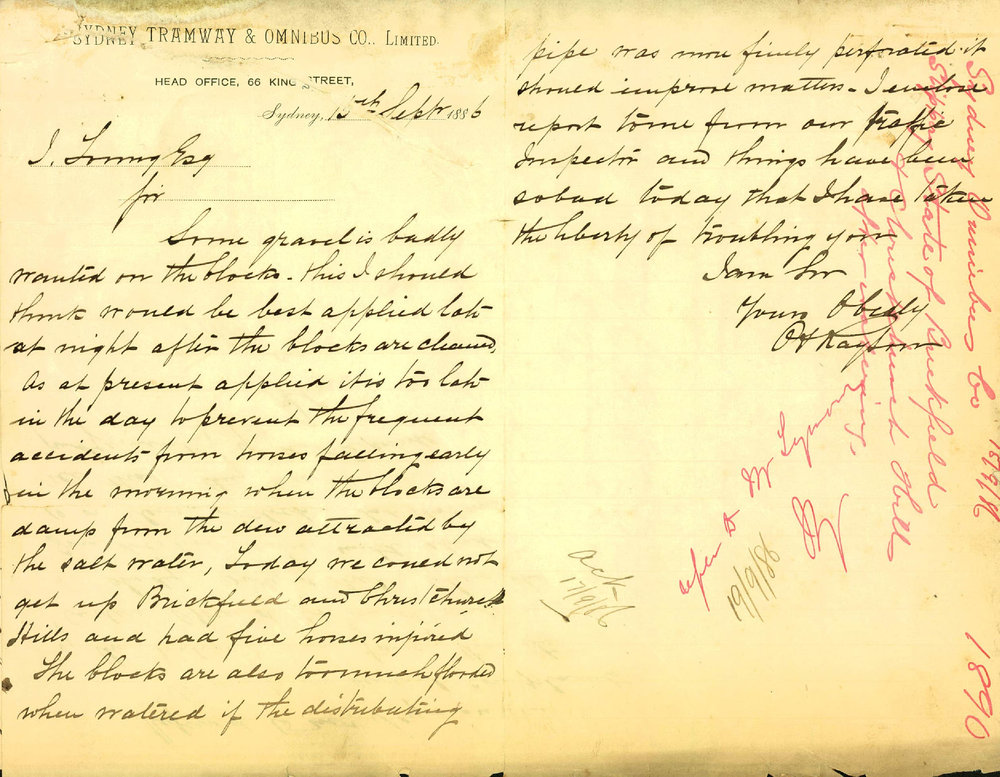 SYDNEY TRAMWAY & OMNIBUS CO., LIMITED.
HEAD OFFICE, 66 KING STREET,
Sydney, 15th Sept 1886
J. Esq
Sir
Some gravel is badly
wanted on the blocks - this I should
think would be best applied late
at night after the blocks are cleaned,
As at present applied it is too late
in the day to prevent the frequent
accidents from horses falling early
in the morning when the blocks are
damp from the dew attracted by
the salt water, Today we could not
get up Brickfield and Christchurch
Hills and had five horses injured
The blocks are also too much flooded
when watered if the distributing
pipe was more finely perforated it
should improve matters - I enclose
report to me from our traffic
Inspector and things have been
so bad today that I have taken
the liberty of troubling you
I am Sir
Yours Obedly
Sydney Omnibus Co 15/9/86
Slippy State of Brickfield
& Christchurch Hills
after watering.
refer to Mr
19/9/86
ack
17/9/86.
1890